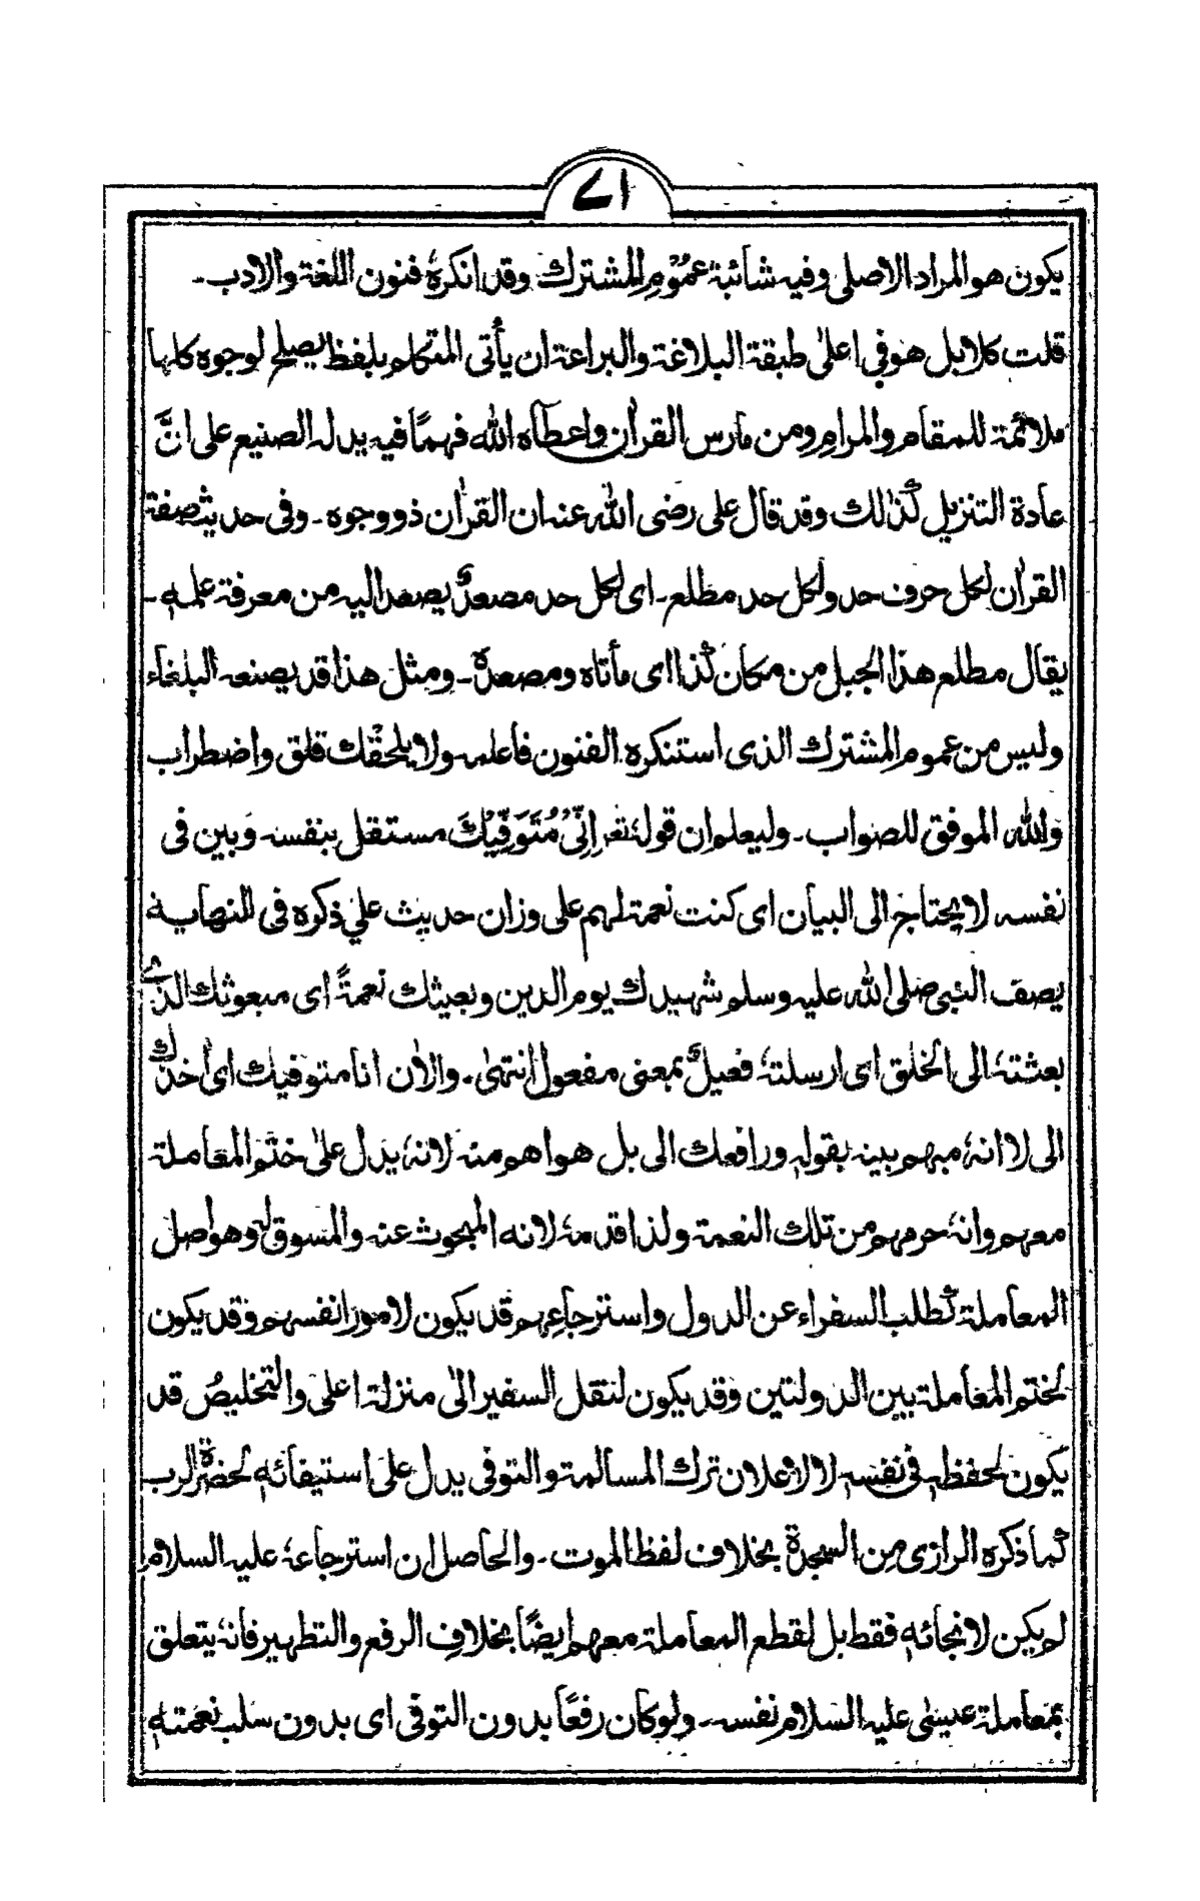 ۷۱
يكون هو المراد الاصلى وفيه شائبة عموم المشترك وقد انكره فنون اللغة والادب۔
قلت كلا بل هو فى اعلىٰ طبقة البلاغة والبراعة ان يأتى المتكلم بلفظ يصلح لوجوه كلها
ملائمة للمقام والمرام ومن مارس القراٰن واعطاه الله فهمًا فيه يدله الصنيع على انَّ
عادة التنزيل كذٰلك وقد قال على رضى الله عنه ان القراٰن ذو وجوه۔ وفى حديث صفة
القراٰن لكل حرف حد ولكل حد مطلع۔ اى لكل حد مصعدٌ يصعد اليه من معرفة علمه۔
يقال مطلع هذا الجبل من مكان كذا اى مأتاه ومصعده۔ ومثل هذا قد يصنعه البلغاء
وليس من عموم المشترك الذى استنكره الفنون فاعلمه ولا يلحقك قلق واضطراب
والله الموفق للصواب۔ وليعلم ان قولهٗ تعٰ اِنِّىْ مُتَوَفِّيْكَ مستقل بنفسه وبين فى
نفسه لا يحتاج الى البيان اى كنت نعمة لهم على وزان حديث علي ذكره فى النهاية
يصف النبى صلى الله عليه وسلم شهيدك يوم الدين وبعيثك نعمةً اى مبعوثك الذى
بعثتهٗ الى الخلق اى ارسلتهٗ فعيلٌ بمعنى مفعول انتهىٰ۔ والاٰن انا متوفيك اى اٰخذك
الى لا انهٗ مبهم بينه بقولهٖ ورافعك الى بل هو اهم منه لانهٗ يدل علىٰ ختم المعاملة
معهم وانهٗ حرمهم من تلك النعمة ولذا قدمهٗ لانه المبحوث عنه والمسوق له وهو اصل
المعاملة كطلب السفراء عن الدول واسترجاعهم قد يكون لامور انفسهم وقد يكون
لختم المعاملة بين الدولتين وقد يكون لنقل السفير الىٰ منزلة اعلىٰ والتخليص قد
يكون لحفظهٖ فى نفسهٖ لا لاعلان ترك المسالمة والتوفى يدل على استيفائهٖ لحضرة الرب
كما ذكره الرازى من السجدة بخلاف لفظ الموت۔ والحاصل ان استرجاعهٗ عليه السلام
لم يكن لانجائهٖ فقط بل لقطع المعاملة معهم ايضًا بخلاف الرفع والتطهير فانهٗ يتعلق
بمعاملة عيسىٰ عليه السلام نفسه۔ ولو كان رفعًا بدون التوفى اى بدون سلب نعمتهٖ